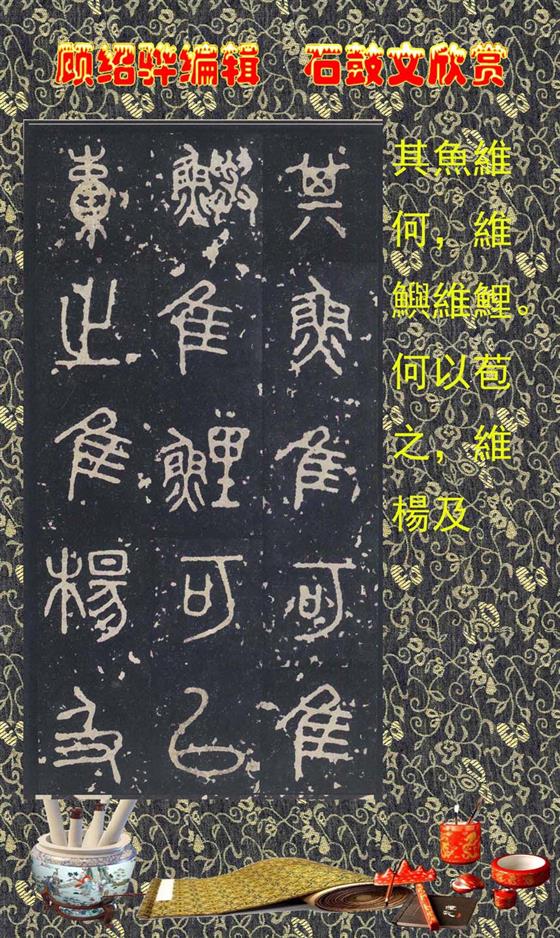 顾绍骅编辑 石鼓文欣赏
其魚隹可隹
鱮隹鯉可㠯
之隹楊及
其魚維
何，維
鱮維鯉。
何以苞
之，維
楊及